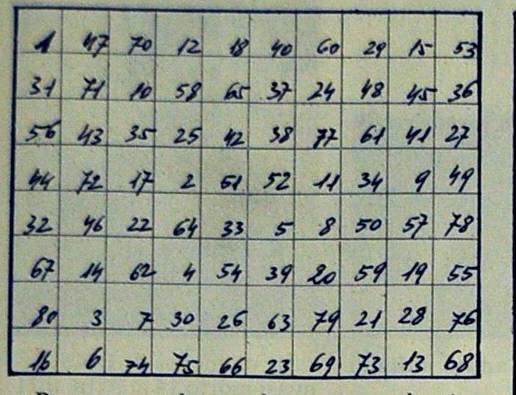 1 47 70 12 18 40 60 29 15 53
31 71 10 58 65 37 24 48 45 36
56 43 35 25 42 38 77 61 41 27
44 72 17 2 51 52 11 34 9 49
32 46 22 64 33 5 8 50 57 78
67 14 62 4 54 39 20 59 19 55
80 3 7 30 26 63 79 21 28 76
16 6 74 75 66 23 69 73 13 68